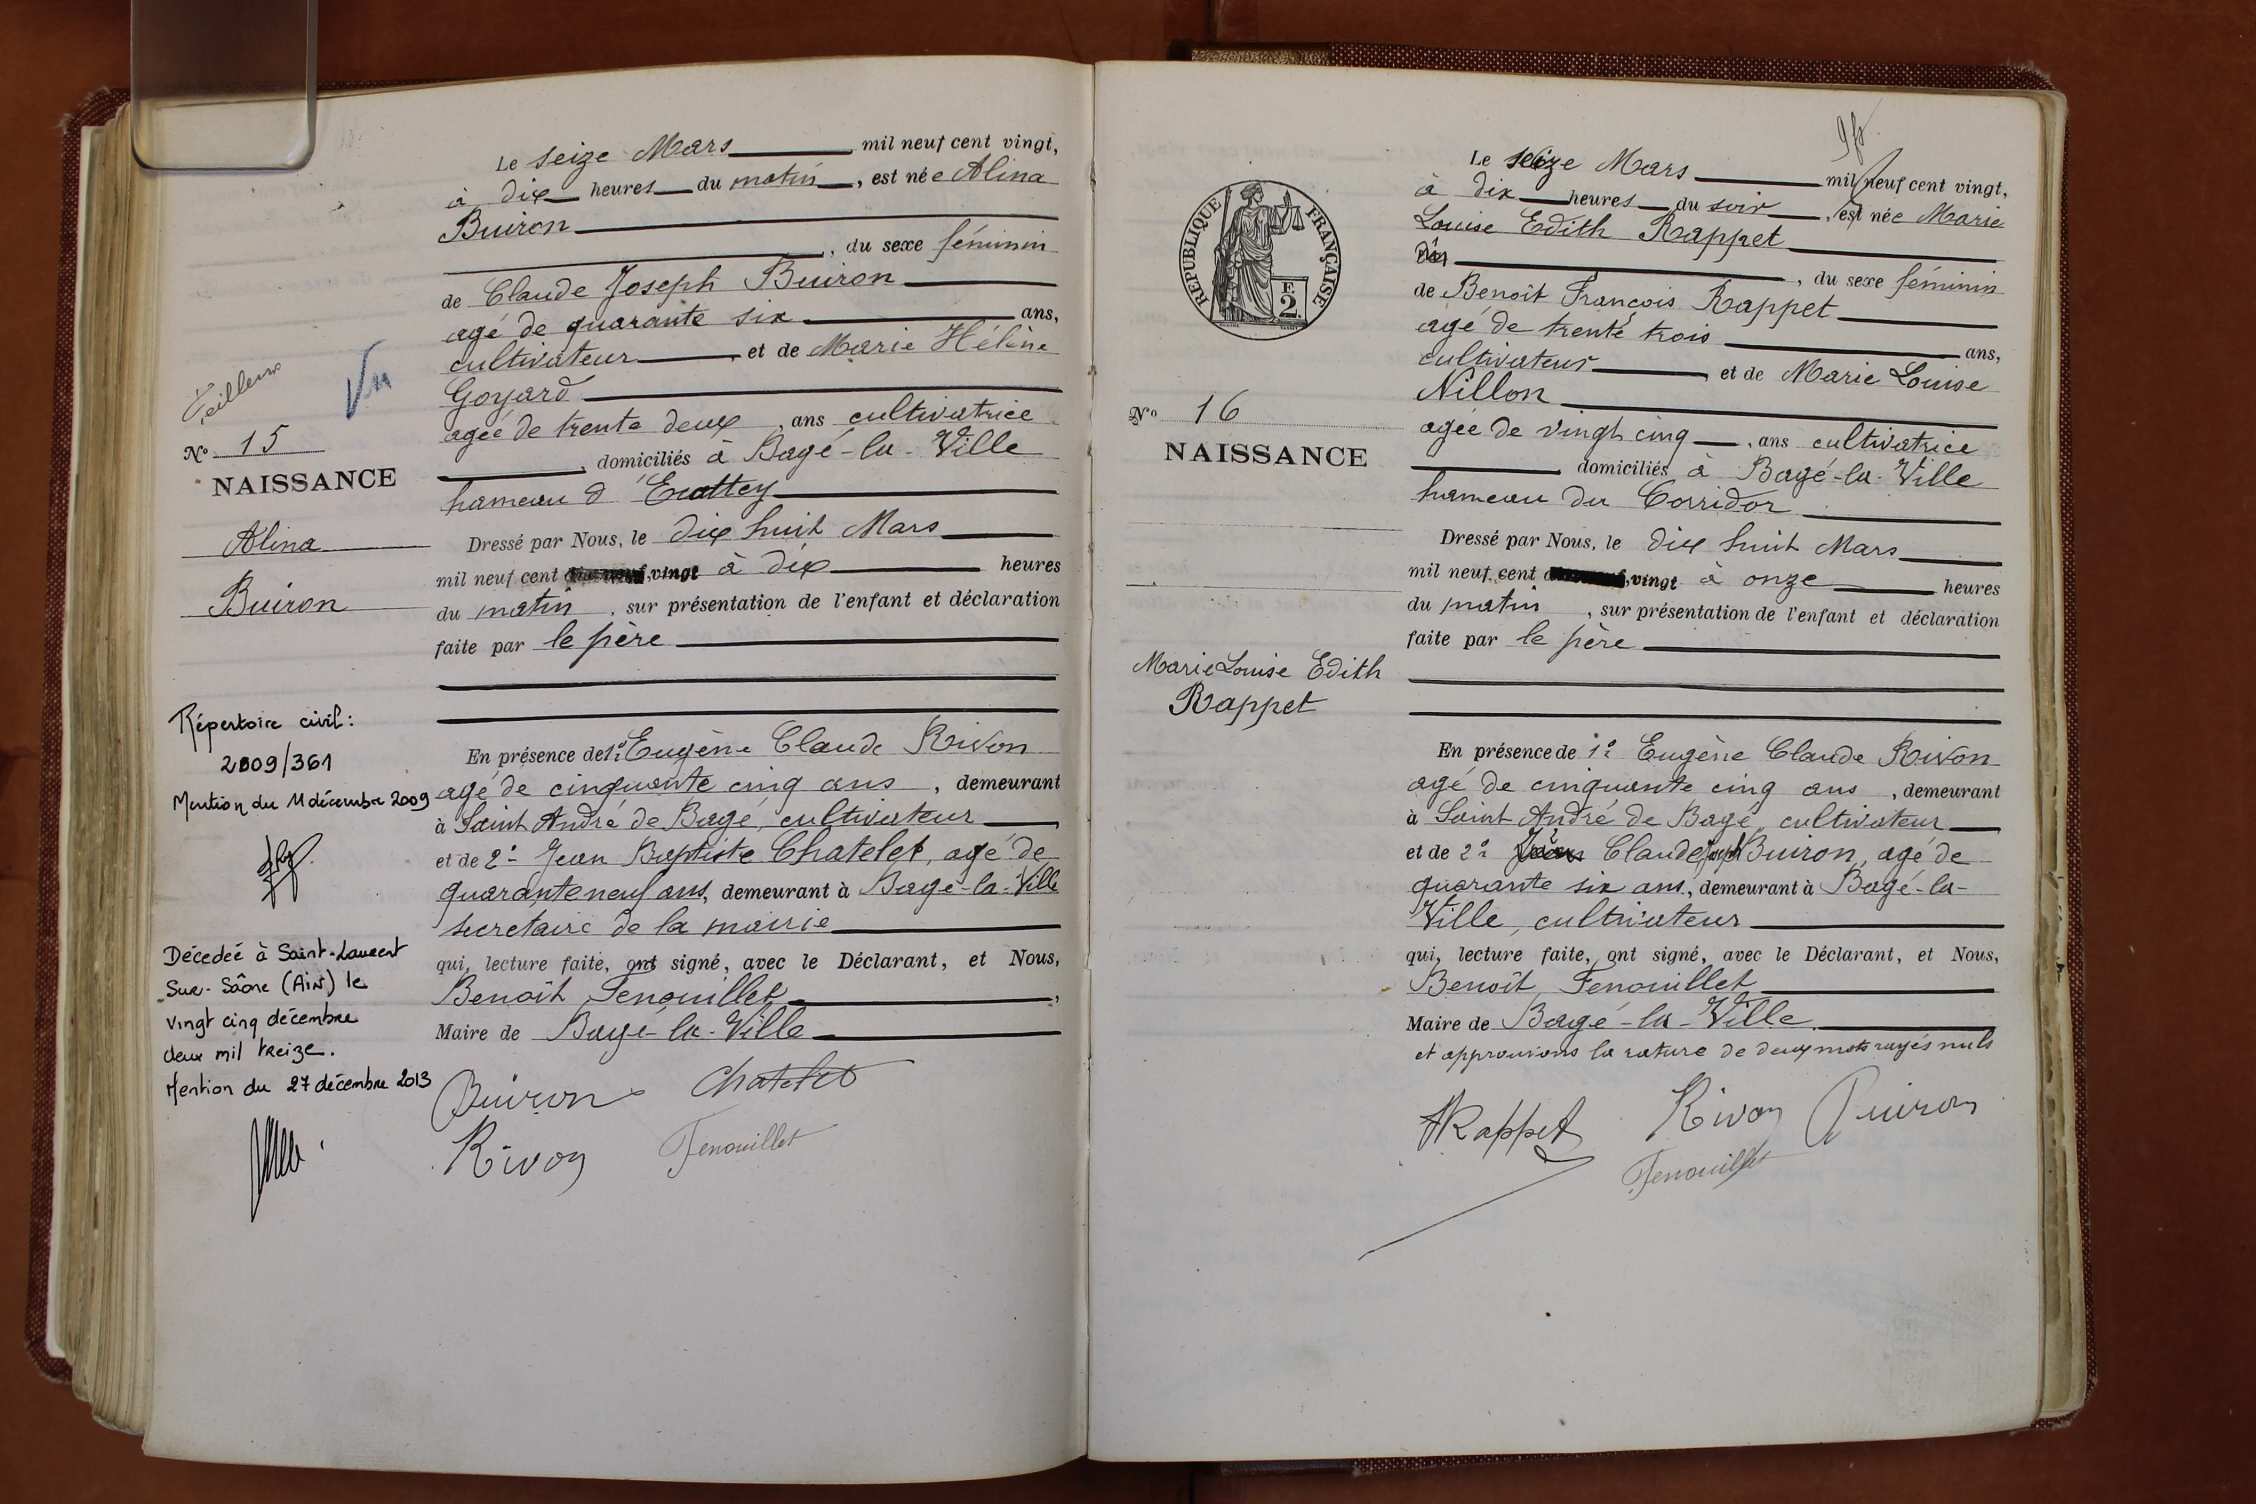 Le seize Mars mil neuf cent vingt,
à dix heures du matin, est née Alina
Buiron
, du sexe féminin
de Claude Joseph Buiron
agé de quarante six ans,
cultivateur et de Marie Hélène
Goyard
agée de trente deux, ans cultivatrice
, domiciliés à Bagé-la-Ville
hameau d'
Vu
N° 15
NAISSANCE
Alina
Buiron
Dressé par Nous, le dix huit Mars
mil neuf cent vingt à dix heures
du matin, sur présentation de l'enfant et déclaration
faite par le père
Répertoire civil :
2009/361
Mention du 11 décembre 2009
En présence de 1° Eugène Claude Rivon
agé de cinquante cinq ans, demeurant
à Saint André de Bagé, cultivateur
et de 2° Jean Baptiste Chatelet, agé de
quarante neuf ans, demeurant à Bagé-la-Ville
secretaire de la mairie
qui, lecture faite, ont signé, avec le Déclarant, et Nous,
Benoît Fenouillet,
Maire de Bagé-la-Ville
Décedée à Saint-Laurent
Sur-Sâone (Ain) le
vingt cinq décembre
deux mil treize.
Mention du 27 décembre 2013
Buiron Chatelet
Rivon Fenouillet
RÉPUBLIQUE FRANÇAISE
F.
2
Le seize Mars mil neuf cent vingt,
à dix heures du soir, est née Marie
Louise Edith Rappet
, du sexe féminin
de Benoît François Rappet
agé de trente trois ans,
cultivateur et de Marie Louise
Nillon
agée de vingt cinq, ans cultivatrice
domiciliés à Bagé-la-Ville
hameau du Corridor
N° 16
NAISSANCE
Marie Louise Edith
Rappet
Dressé par Nous, le dix huit Mars
mil neuf cent vingt à onze heures
du matin, sur présentation de l'enfant et déclaration
faite par le père
En présence de 1° Eugène Claude Rivon
agé de cinquante cinq ans, demeurant
à Saint André de Bagé, cultivateur
et de 2° Claude Joseph Buiron, agé de
quarante six ans, demeurant à Bagé-la-
Ville, cultivateur
qui, lecture faite, ont signé, avec le Déclarant, et Nous,
Benoît Fenouillet
Maire de Bagé-la-Ville.
et approuvons la rature de deux mots rayés nuls
Rappet Rivon Buiron
Fenouillet